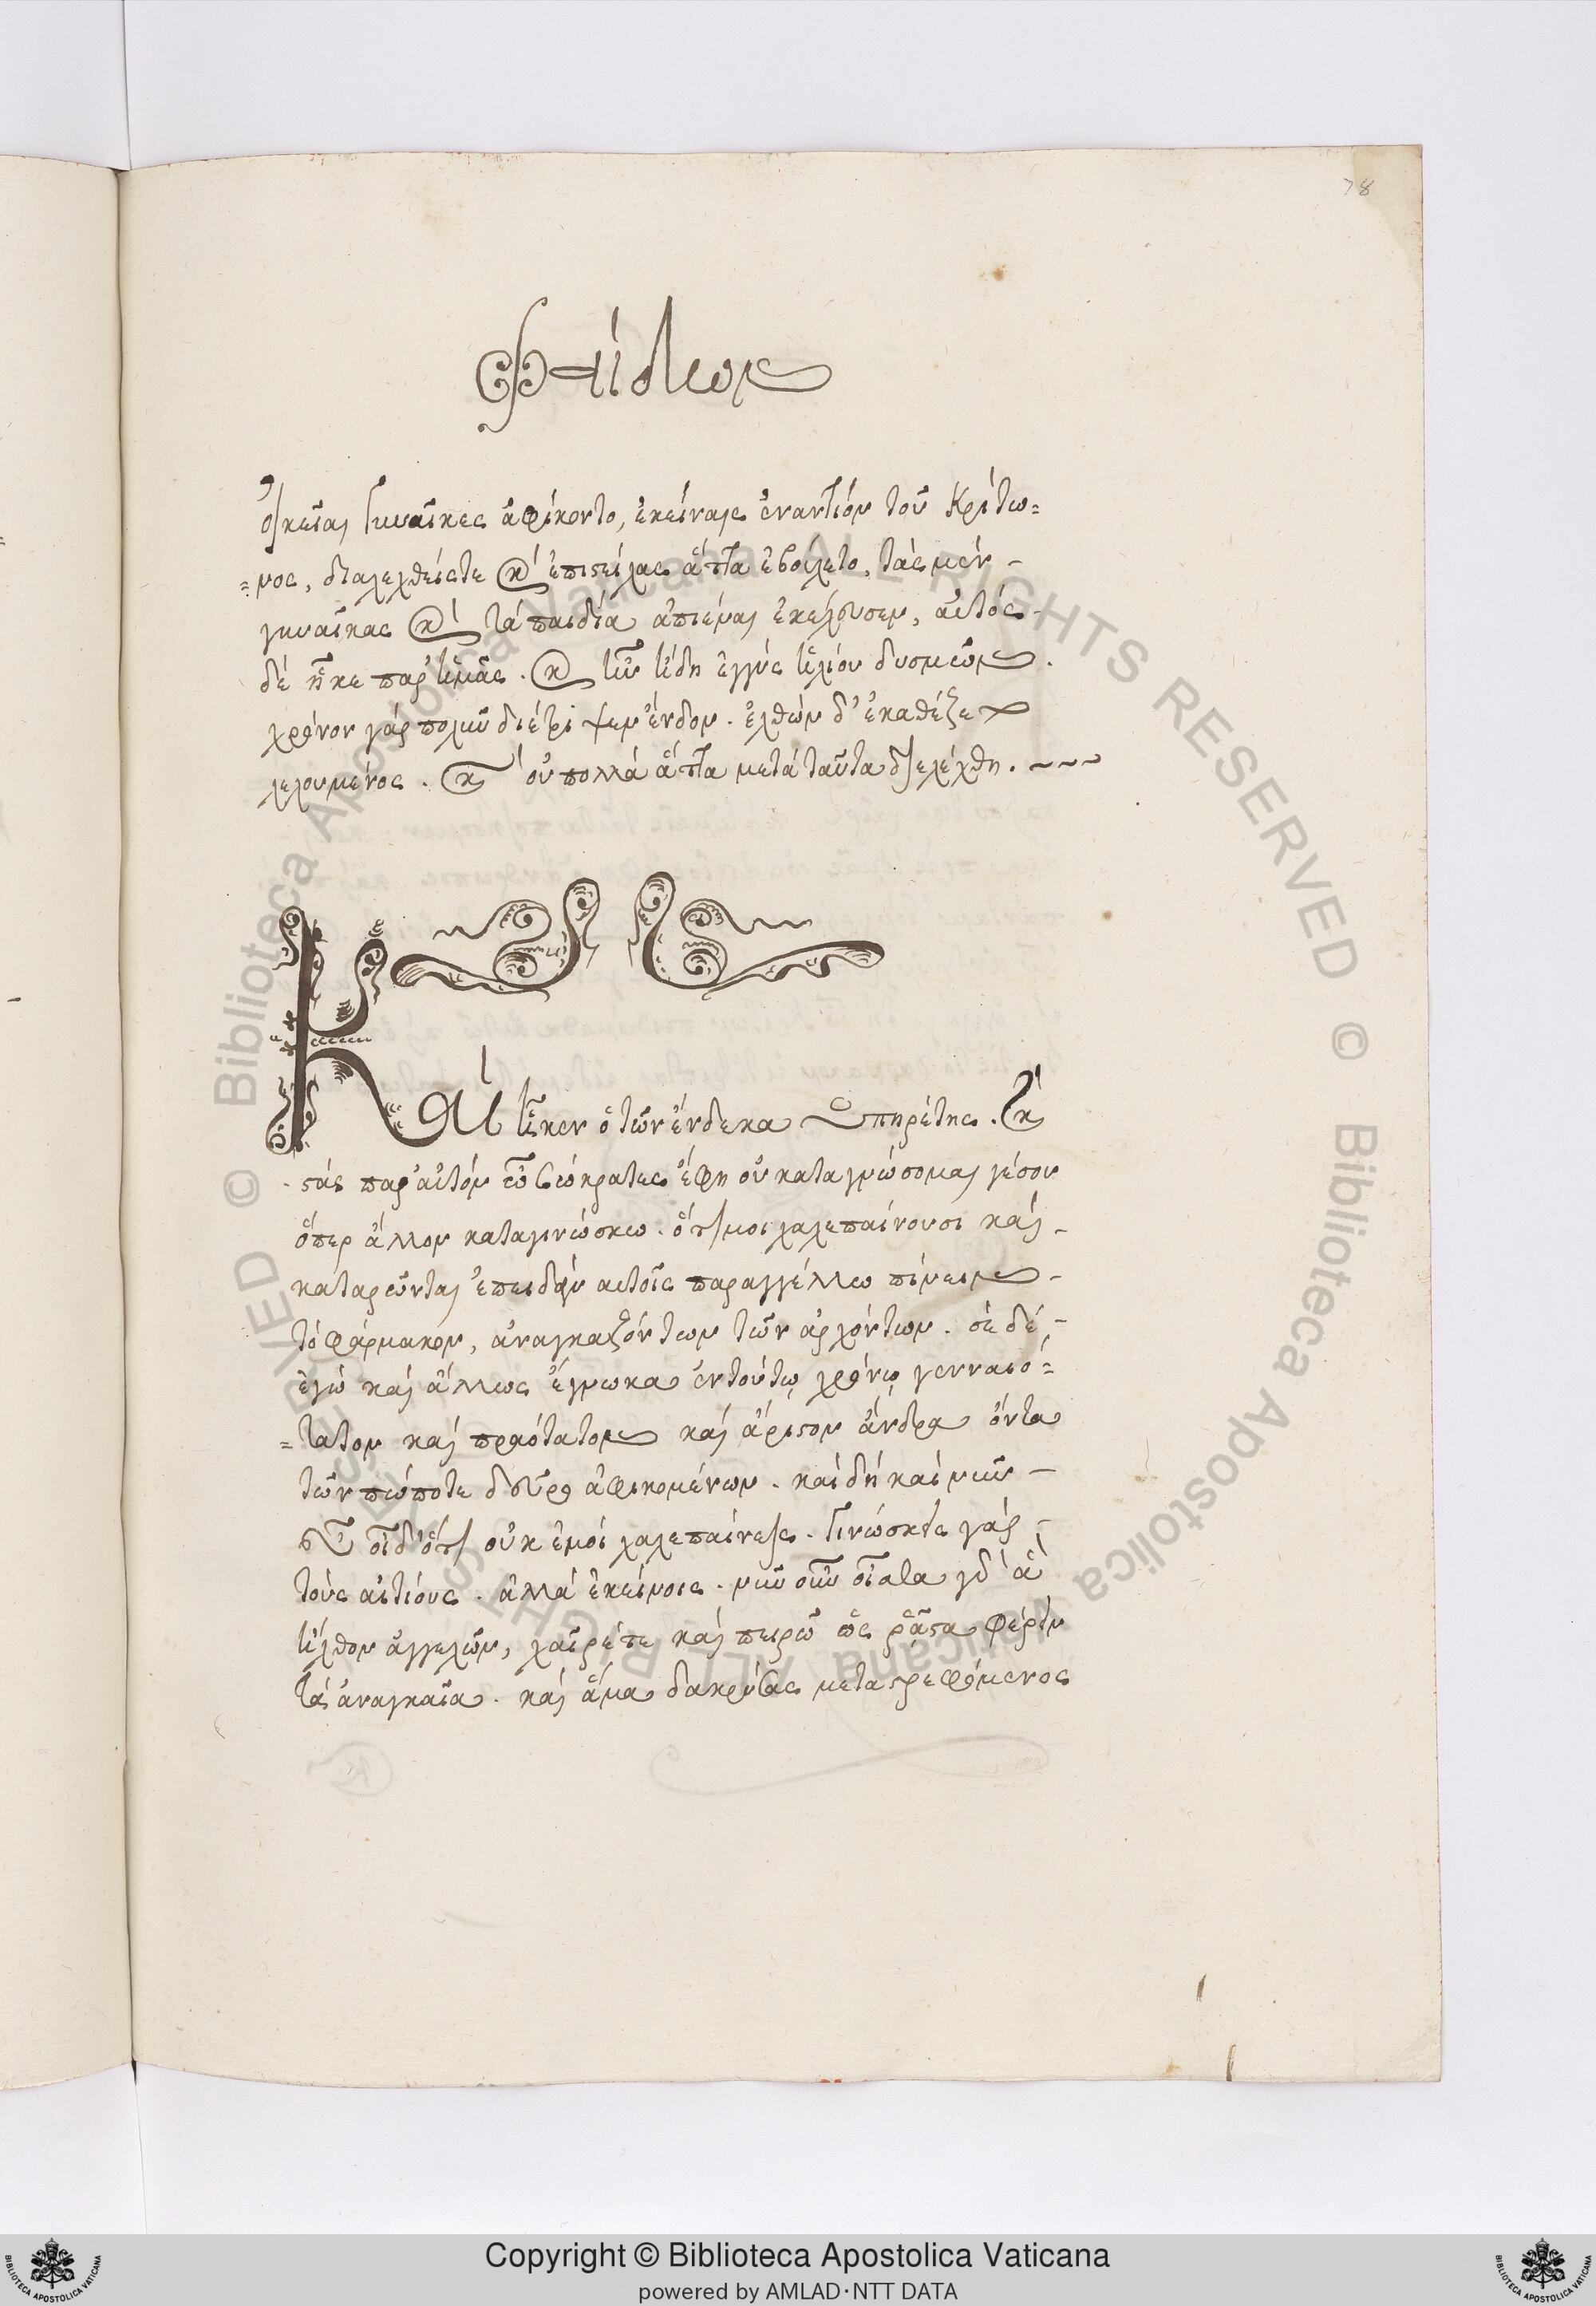 78
Φαίδων
οἰκεῖαι γυναῖκες ἀφίκοντο, ἐκείναις ἐναντίον τοῦ Κρίτω=
=νος, διαλεχθείς τε κ' ἐπιστείλας ἅττα ἐβούλετο, τὰς μὲν -
γυναῖκας κ' τὰ παιδία ἀπιέναι ἐκέλευσεν, αὐτὸς -
δὲ ἧκε παρ' ἡμᾶς. κ ἦν ἤδη ἐγγὺς ἡλίου δυσμῶν.
χρόνον γὰρ πολὺν διέτριψεν ἔνδον. ἐλθὼν δ' ἐκαθέζετο
λελουμένος. κ' οὐ πολλὰ ἅττα μετὰ ταῦτα διελέχθη. ~~~
Καὶ ἧκεν ὁ τῶν ἕνδεκα ὑπηρέτης. κ'
στὰς παρ' αὐτὸν ὦ Σώκρατες ἔφη οὐ καταγνώσομαι γέ σου
ὅπερ ἄλλων καταγινώσκω. ὅτι μοι χαλεπαίνουσι καὶ -
καταρῶνται ἐπειδὰν αὐτοῖς παραγγέλλω πίνειν -
τὸ φάρμακον, ἀναγκαζόντων τῶν ἀρχόντων. σὲ δὲ -
ἐγὼ καὶ ἄλλως ἔγνωκα ἐν τούτῳ χρόνῳ γενναιό=
=τατον καὶ πραότατον καὶ ἄριστον ἄνδρα ὄντα
τῶν πώποτε δεῦρο ἀφικομένων. καὶ δὴ καὶ νῦν -
εὖ οἶδ' ὅτι οὐκ ἐμοὶ χαλεπαίνεις. γινώσκεις γὰρ -
τοὺς αἰτίους. ἀλλὰ ἐκείνοις. νῦν οὖν οἶσθα γὰρ ἃ
ἦλθον ἀγγέλων, χαῖρέ τε καὶ πειρῶ ὡς ῥᾷστα φέρειν
τὰ ἀναγκαῖα. καὶ ἅμα δακρύσας μεταστρεφόμενος
© Biblioteca Apostolica Vaticana ALL RIGHTS RESERVED © Biblioteca Apostolica Vaticana ALL RIGHTS RESERVED
Copyright © Biblioteca Apostolica Vaticana
powered by AMLAD·NTT DATA
BIBLIOTECA APOSTOLICA VATICANA
BIBLIOTECA APOSTOLICA VATICANA